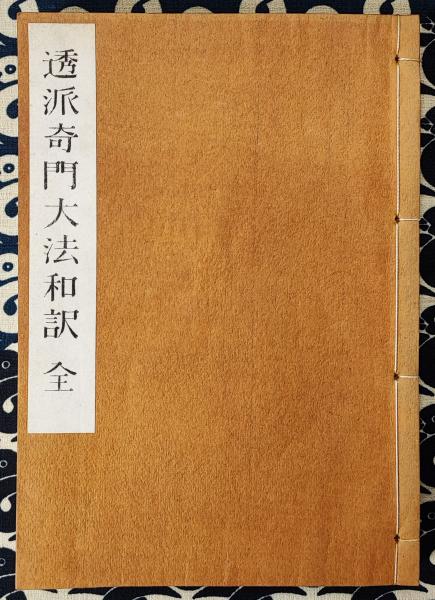 透派奇門大法和訳 全